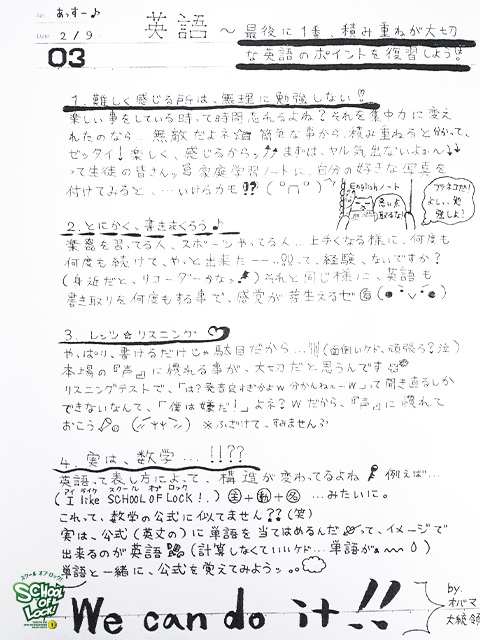 No. あっすー♪
英語 ～ 最後に1番、積み重ねが大切
Date 2/9
な英語のポイントを復習しよう!!
03
1. 難しく感じる所は、無理に勉強しない!!
楽しい事をしている時って時間忘れるよね?それを集中力に変え
れたのなら…無敵だよネ 簡単な事から、積み重ねると分かって、
ゼッタイ!楽しく、感じるからっ♪ まずは、ヤル気出ないよぉ〜↓↓
って生徒の皆さんッ 家庭学習ノートに、自分の好きな写真を
付けてみると、…いけるカモ!?
Englishノート
2. とにかく、書きまくろう♪
楽器を習ってる人、スポーツやってる人…上手くなる様に、何度も
何度も続けて、やっと出来たーー…!!って、経験、ないですか?
(身近だと、リコーダーかなっ) それと同じ様に、英語も
書き取りを何度もする事で、感覚が芽生えるゼ
3. レッツ☆リスニング
や、ぱり、書けるだけじゃ駄目だから…!!(面倒いケド、頑張ろ?泣)
本場の『声』に慣れる事が、大切だと思うんです
リスニングテストで、「は?発音良すぎかよw分かんねぇーw」って聞き直るしか
できないなんて、「僕は嫌だ!」よネ?wだから、『声』に慣れて
おこう ※ふざけて、すみません
4. 実は、数学…!!??
英語って表し方によって、構造が変わってるよね 例えば…
アイ ライク スクール オブ ロック
(I like SCHOOL OF LOCK!.) 主+動+名 …みたいに。
これって、数学の公式に似てません??(笑)
実は、公式(英文の)に単語を当てはめるんだって、イメージで
出来るのが英語 (計算しなくていいケド…単語がぁ〜)
単語と一緒に、公式を覚えてみようッ
スクール オブ ロック!
SCHOOL OF LOCK!
We can do it!!
by.
オバマ
大統領